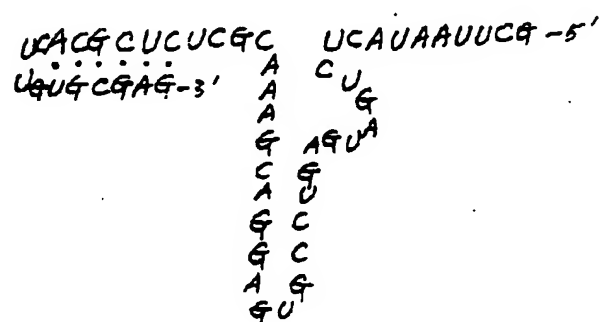 UCACGCUCUCGC UCAUAAUUCG-5'
UGUGCGAG-3' A C U
A G
A A
G AGUU
C G
A U
G C
G C
A G
GU